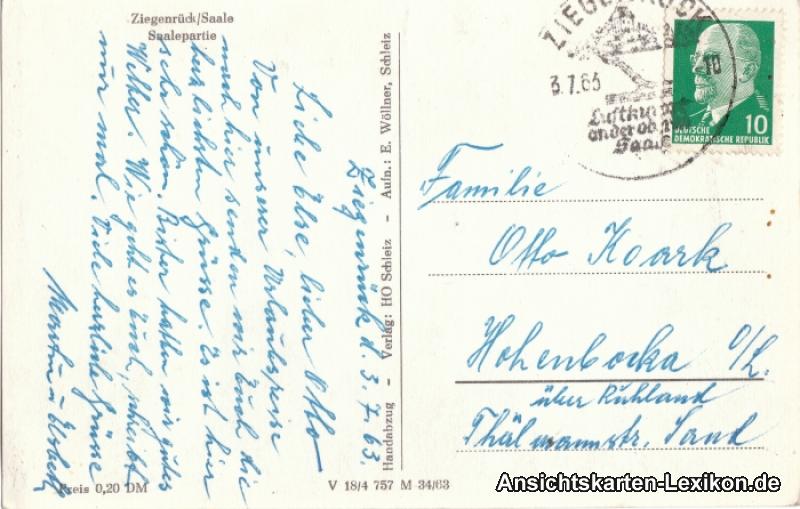 Ziegenrück/Saale
Saalepartie
Ziegenrück d. 3.7.63.
Liebe Else, lieber Otto
Von unserer Urlaubsreise
nach hier senden wir Euch die
herzlichsten Grüsse. Es ist hier
sehr schön. Bisher hatten wir gutes
Wetter. Wie geht es Euch, schreibt
nur mal. Viele herzliche Grüsse
Martin u.
Preis 0,20 DM
Handabzug - Verlag: HO Schleiz - Aufn.: E. Wöllner, Schleiz
V 18/4 757 M 34/63
ZIEGENRÜCK
3.7.63
10
Luftkurort
an der oberen
Saale
10
DEUTSCHE
DEMOKRATISCHE REPUBLIK
Familie
Otto Koark
Hohenbocka O/L.
über Ruhland
Thälmannstr.
Ansichtskarten-Lexikon.de